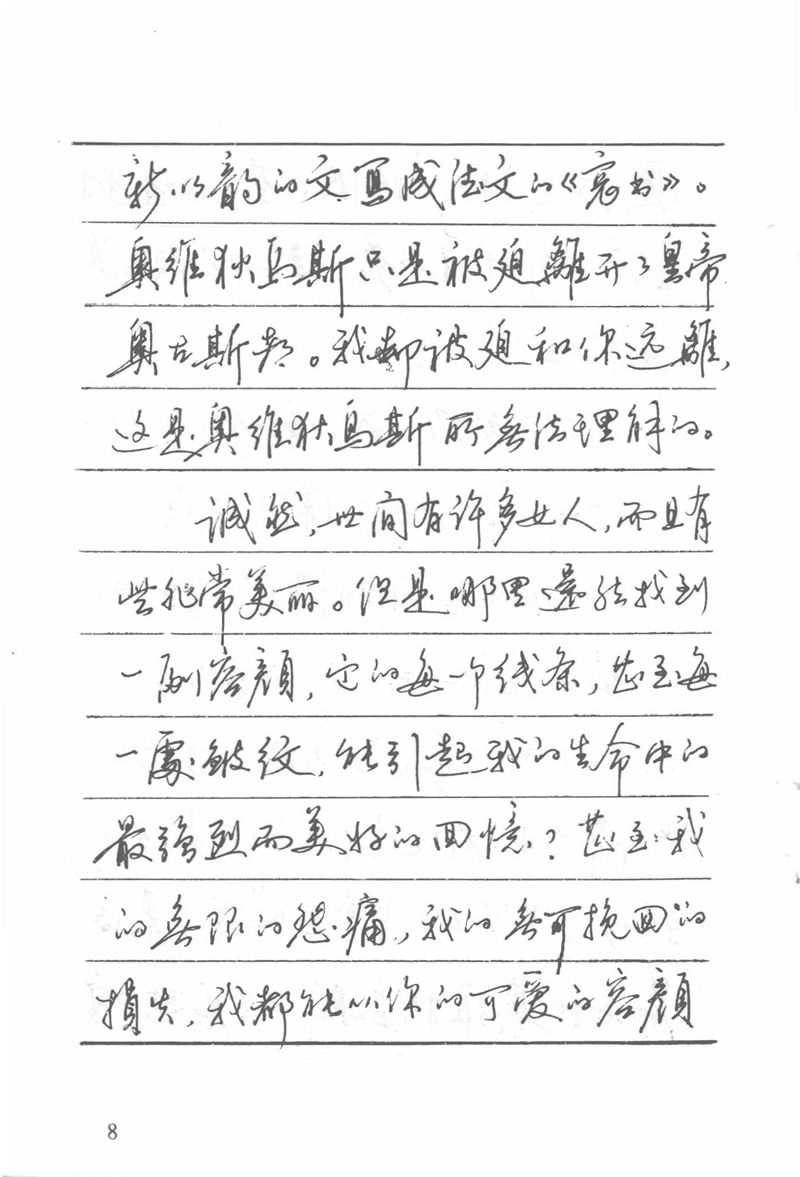 新以韵的文写成法文的《哀书》。
奥维狄乌斯只是被迫離开了皇帝
奥古斯都。我都被迫和你远離,
这是奥維狄烏斯所無法理解的。
诚然,世间有许多女人,而且有
些非常美丽。但是哪里還能找到
一副容顔,它的每一个线条,甚至每
一處皱纹,能引起我的生命中的
最強烈而美好的回憶?甚至我
的無限的悲痛,我的無可挽回的
損失,我都能从你的可爱的容顔
8